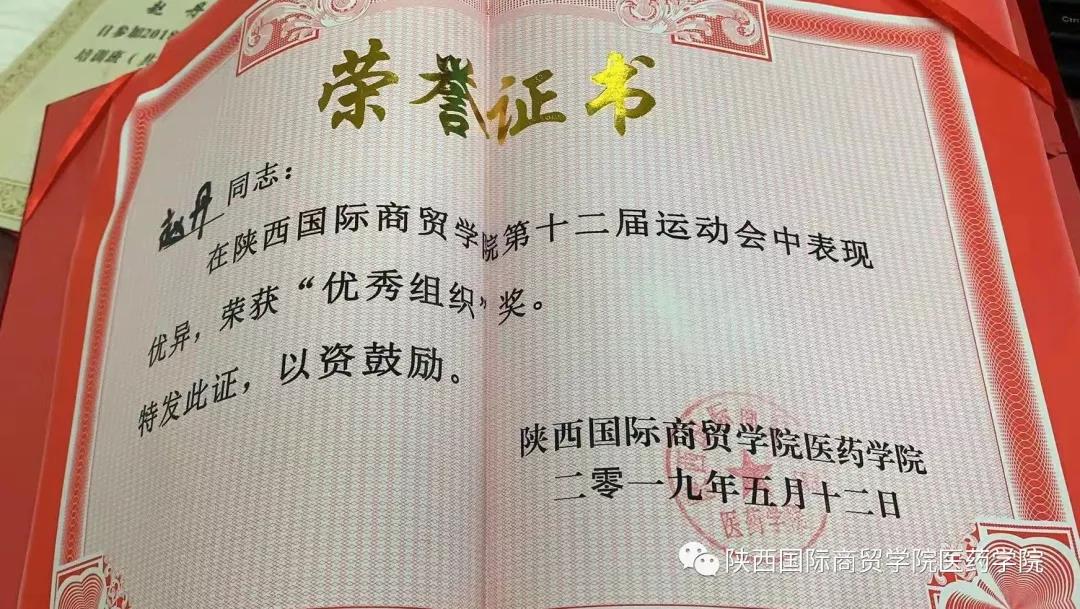 赵丹
自参加2018
培训班（共
荣誉证书
赵丹同志：
在陕西国际商贸学院第十二届运动会中表现
优异，荣获“优秀组织”奖。
特发此证，以资鼓励。
陕西国际商贸学院医药学院
二零一九年五月十二日
医药学院
陕西国际商贸学院医药学院